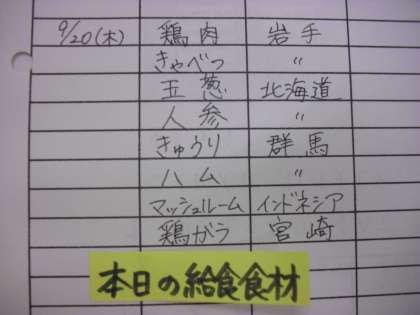 9/20(木) 鶏肉 岩手
きゃべつ 〃
玉葱 北海道
人参 〃
きゅうり 群馬
ハム 〃
マッシュルーム インドネシア
鶏がら 宮崎
本日の給食食材